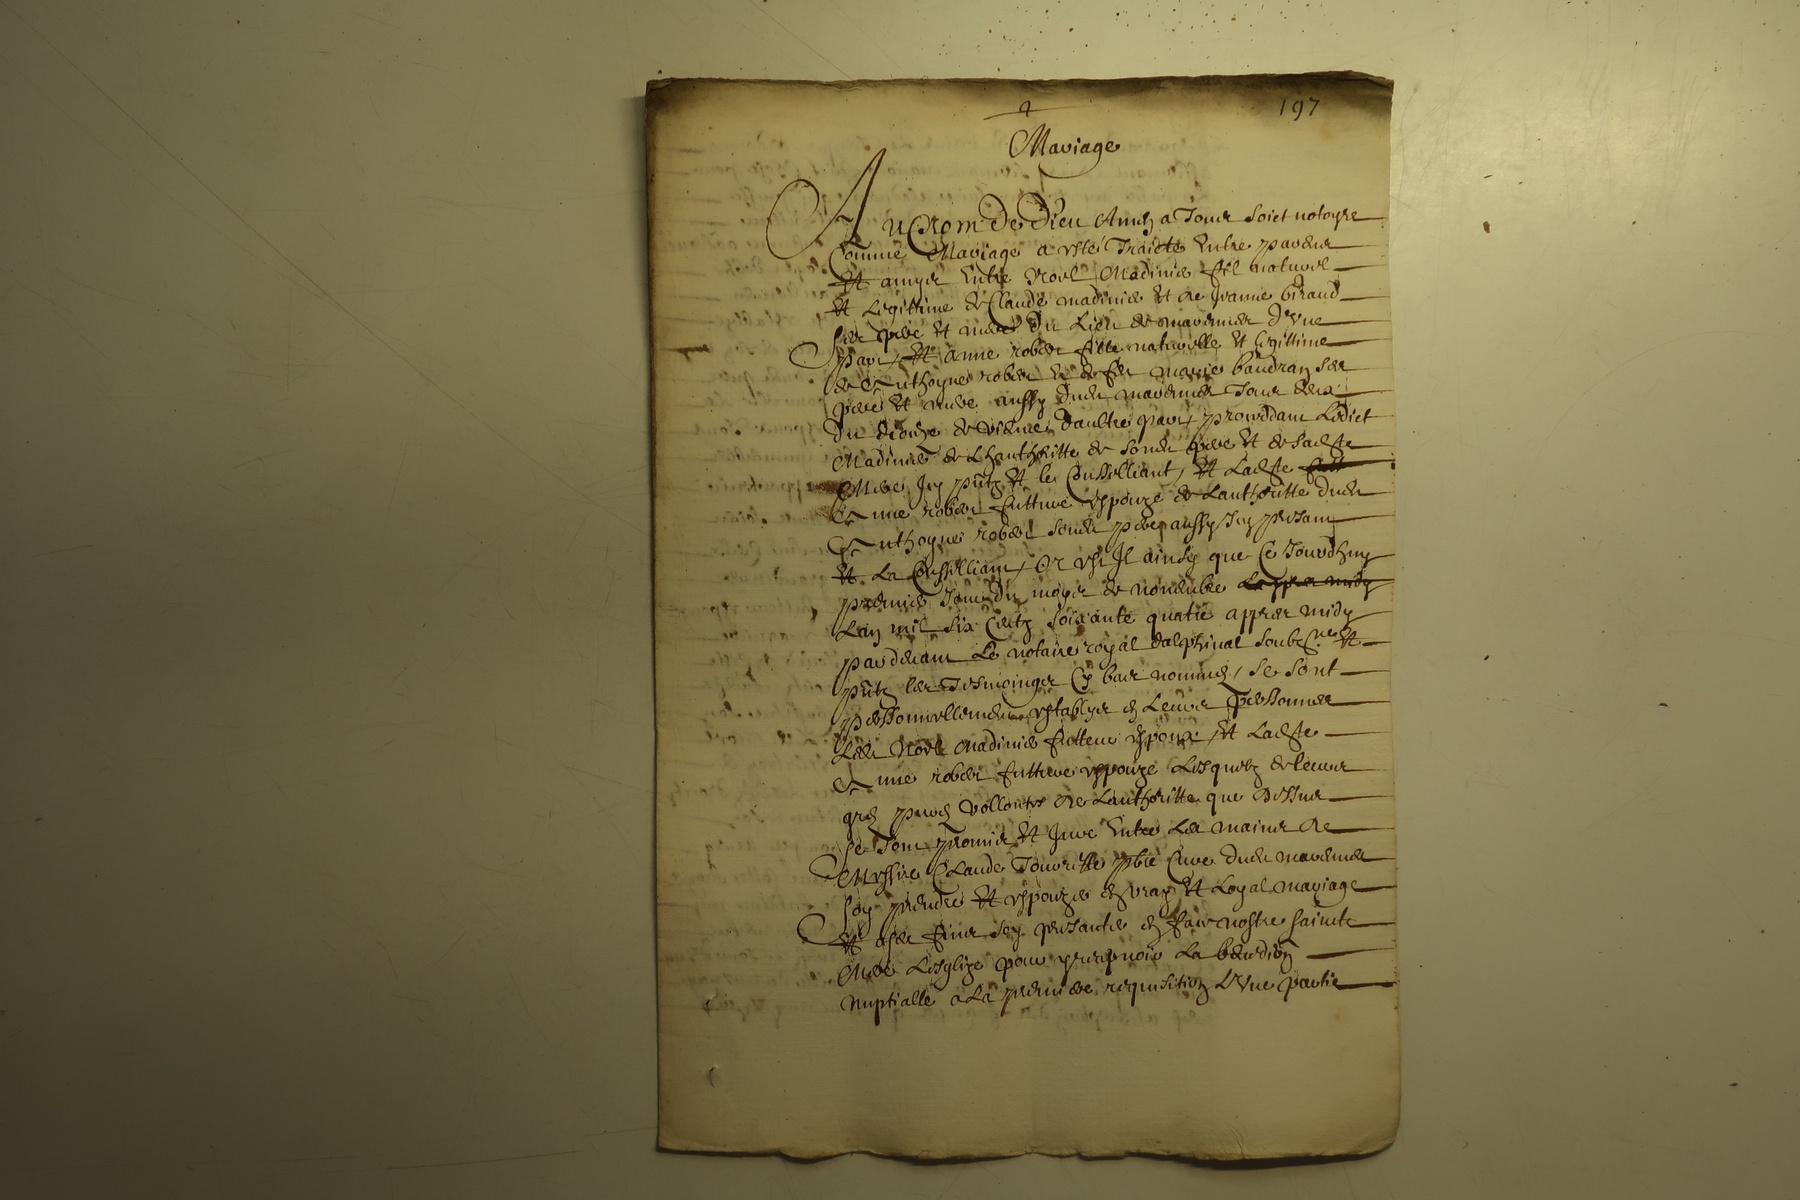 197
Mariage
Au Nom de Dieu Amen a Tous soict notoyre
Comme Mariage a esté Traicte Entre parens
Et amys Entre Noel Madinier fil naturel
Et Legittime de Claude madinier Et de Jeanne biraud
ses pere Et mere du Lieu de d'Vne
part, Et anne rober fille naturelle Et legittime
de Anthoyne rober Et de feu marie baudran ses
pere Et mere aussy dudt Tous deux
du dioceze de vienne daultre part, procedant Ledict
Madinier de Lhauthoritte de sondt pere Et de sadte
Mere Icy pntz Et le Conseilliant, Et Ladte
Anne rober future Espouze de Lauthoritte dudt
Anthoyne rober sondt pere aussy Icy present
Et La Conseilliant, Or Est Il ainsy que Ce Jourdhuy
premier Jour du moys de novembre
Lan mil six Centz soixante quatre appres midy
pardevant Le notaire royal dalphinal soubz.né Et
pntz les Tesmoingz Cy bas nommes, se sont
personnellement Establys en Leurs personnes
Led Noel Madinier futteur Espoux, Et Ladte
Anne rober future Espouze Lesquelz de leurs
grez pures vollontes de Lauthoritte que dessus
se sont promis Et Jure Entre Les mains de
Messire Claude pbre Cure dudt
soy prendre Et Espouzer en vray Et Loyal mariage
Et a ses fins soy presanter en face nostre saincte
Mere Lesglize pour y recepvoir La benedion
nuptialle a La premiere requisition LVne partie